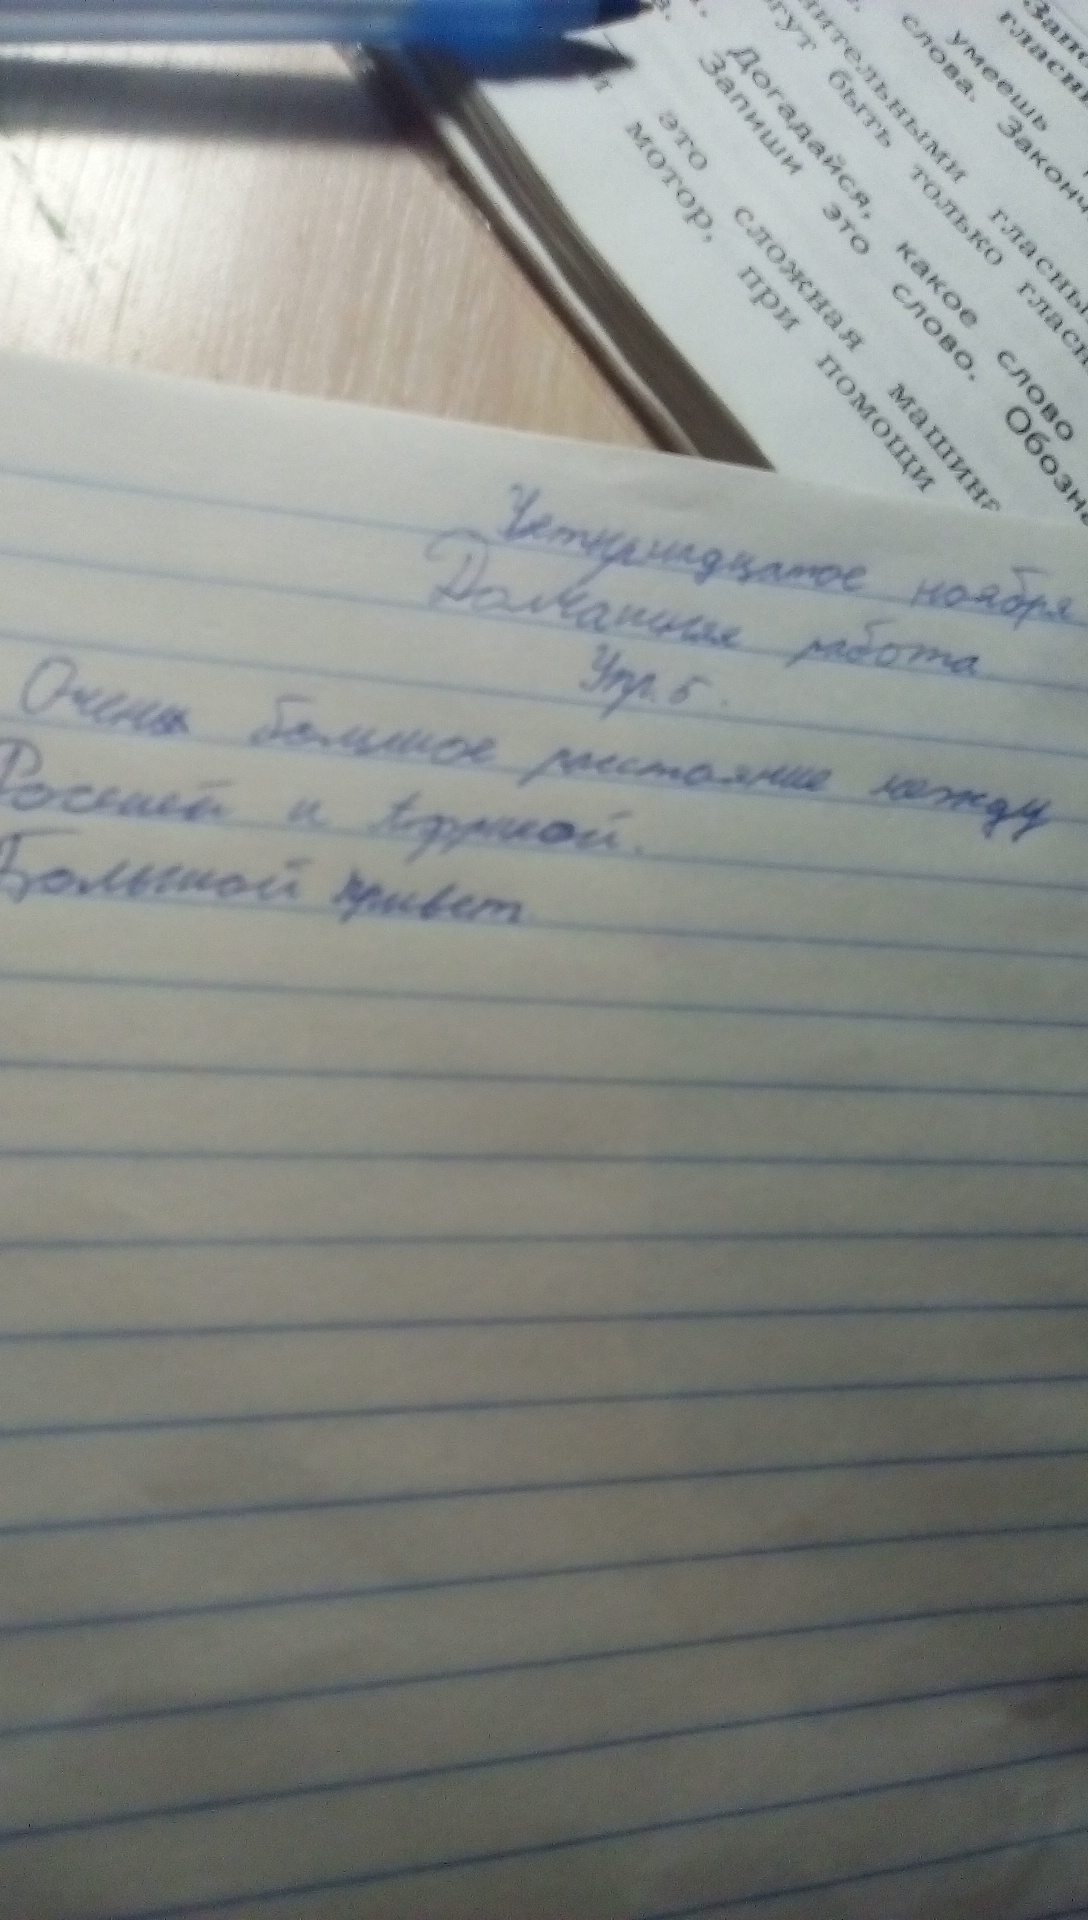 Запо
гласн
умеешь
слова. Законч
нительными гласны
огут быть только гласн
Догадайся, какое слово
Запиши это слово. Обозна
это сложная машина
мотор, при помощи
Четырнадцатое ноября
Домашняя работа
Упр. 5.
Очень большое расстояние между
Россией и Африкой.
Большой привет